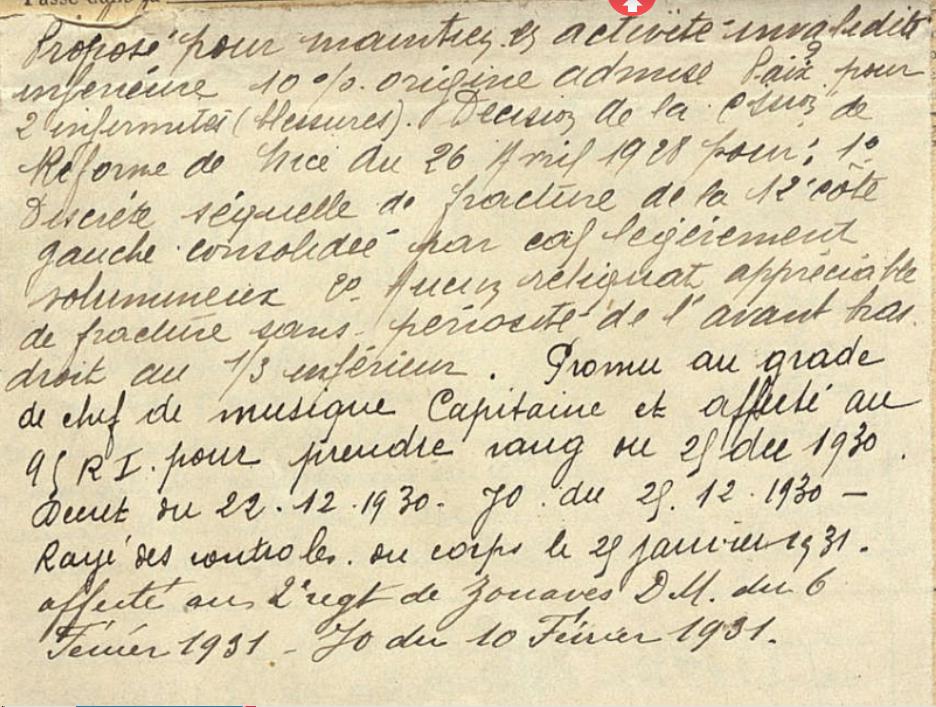 Passé dans la
Proposé pour maintien en activité invalidité
inférieure 10 %. origine admise Paix pour
2 infirmités (blessures). Décision de la de
Réforme de Nice du 26 Avril 1928 pour: 1°
Discrète séquelle de fracture de la 12e côte
gauche consolidée par cal légèrement
volumineux 2o Aucun reliquat appréciable
de fracture sans périosité de l'avant bras
droit au 1/3 inférieur. Promu au grade
de chef de musique Capitaine et affecté au
95 R I. pour prendre rang du 25 dec 1930.
Decret du 22.12.1930. JO. du 25.12.1930 -
Rayé des controles. du corps le 25 janvier 1931.
affecté au 2e regt de Zouaves D.M. du 6
Février 1931 - JO du 10 Février 1931.